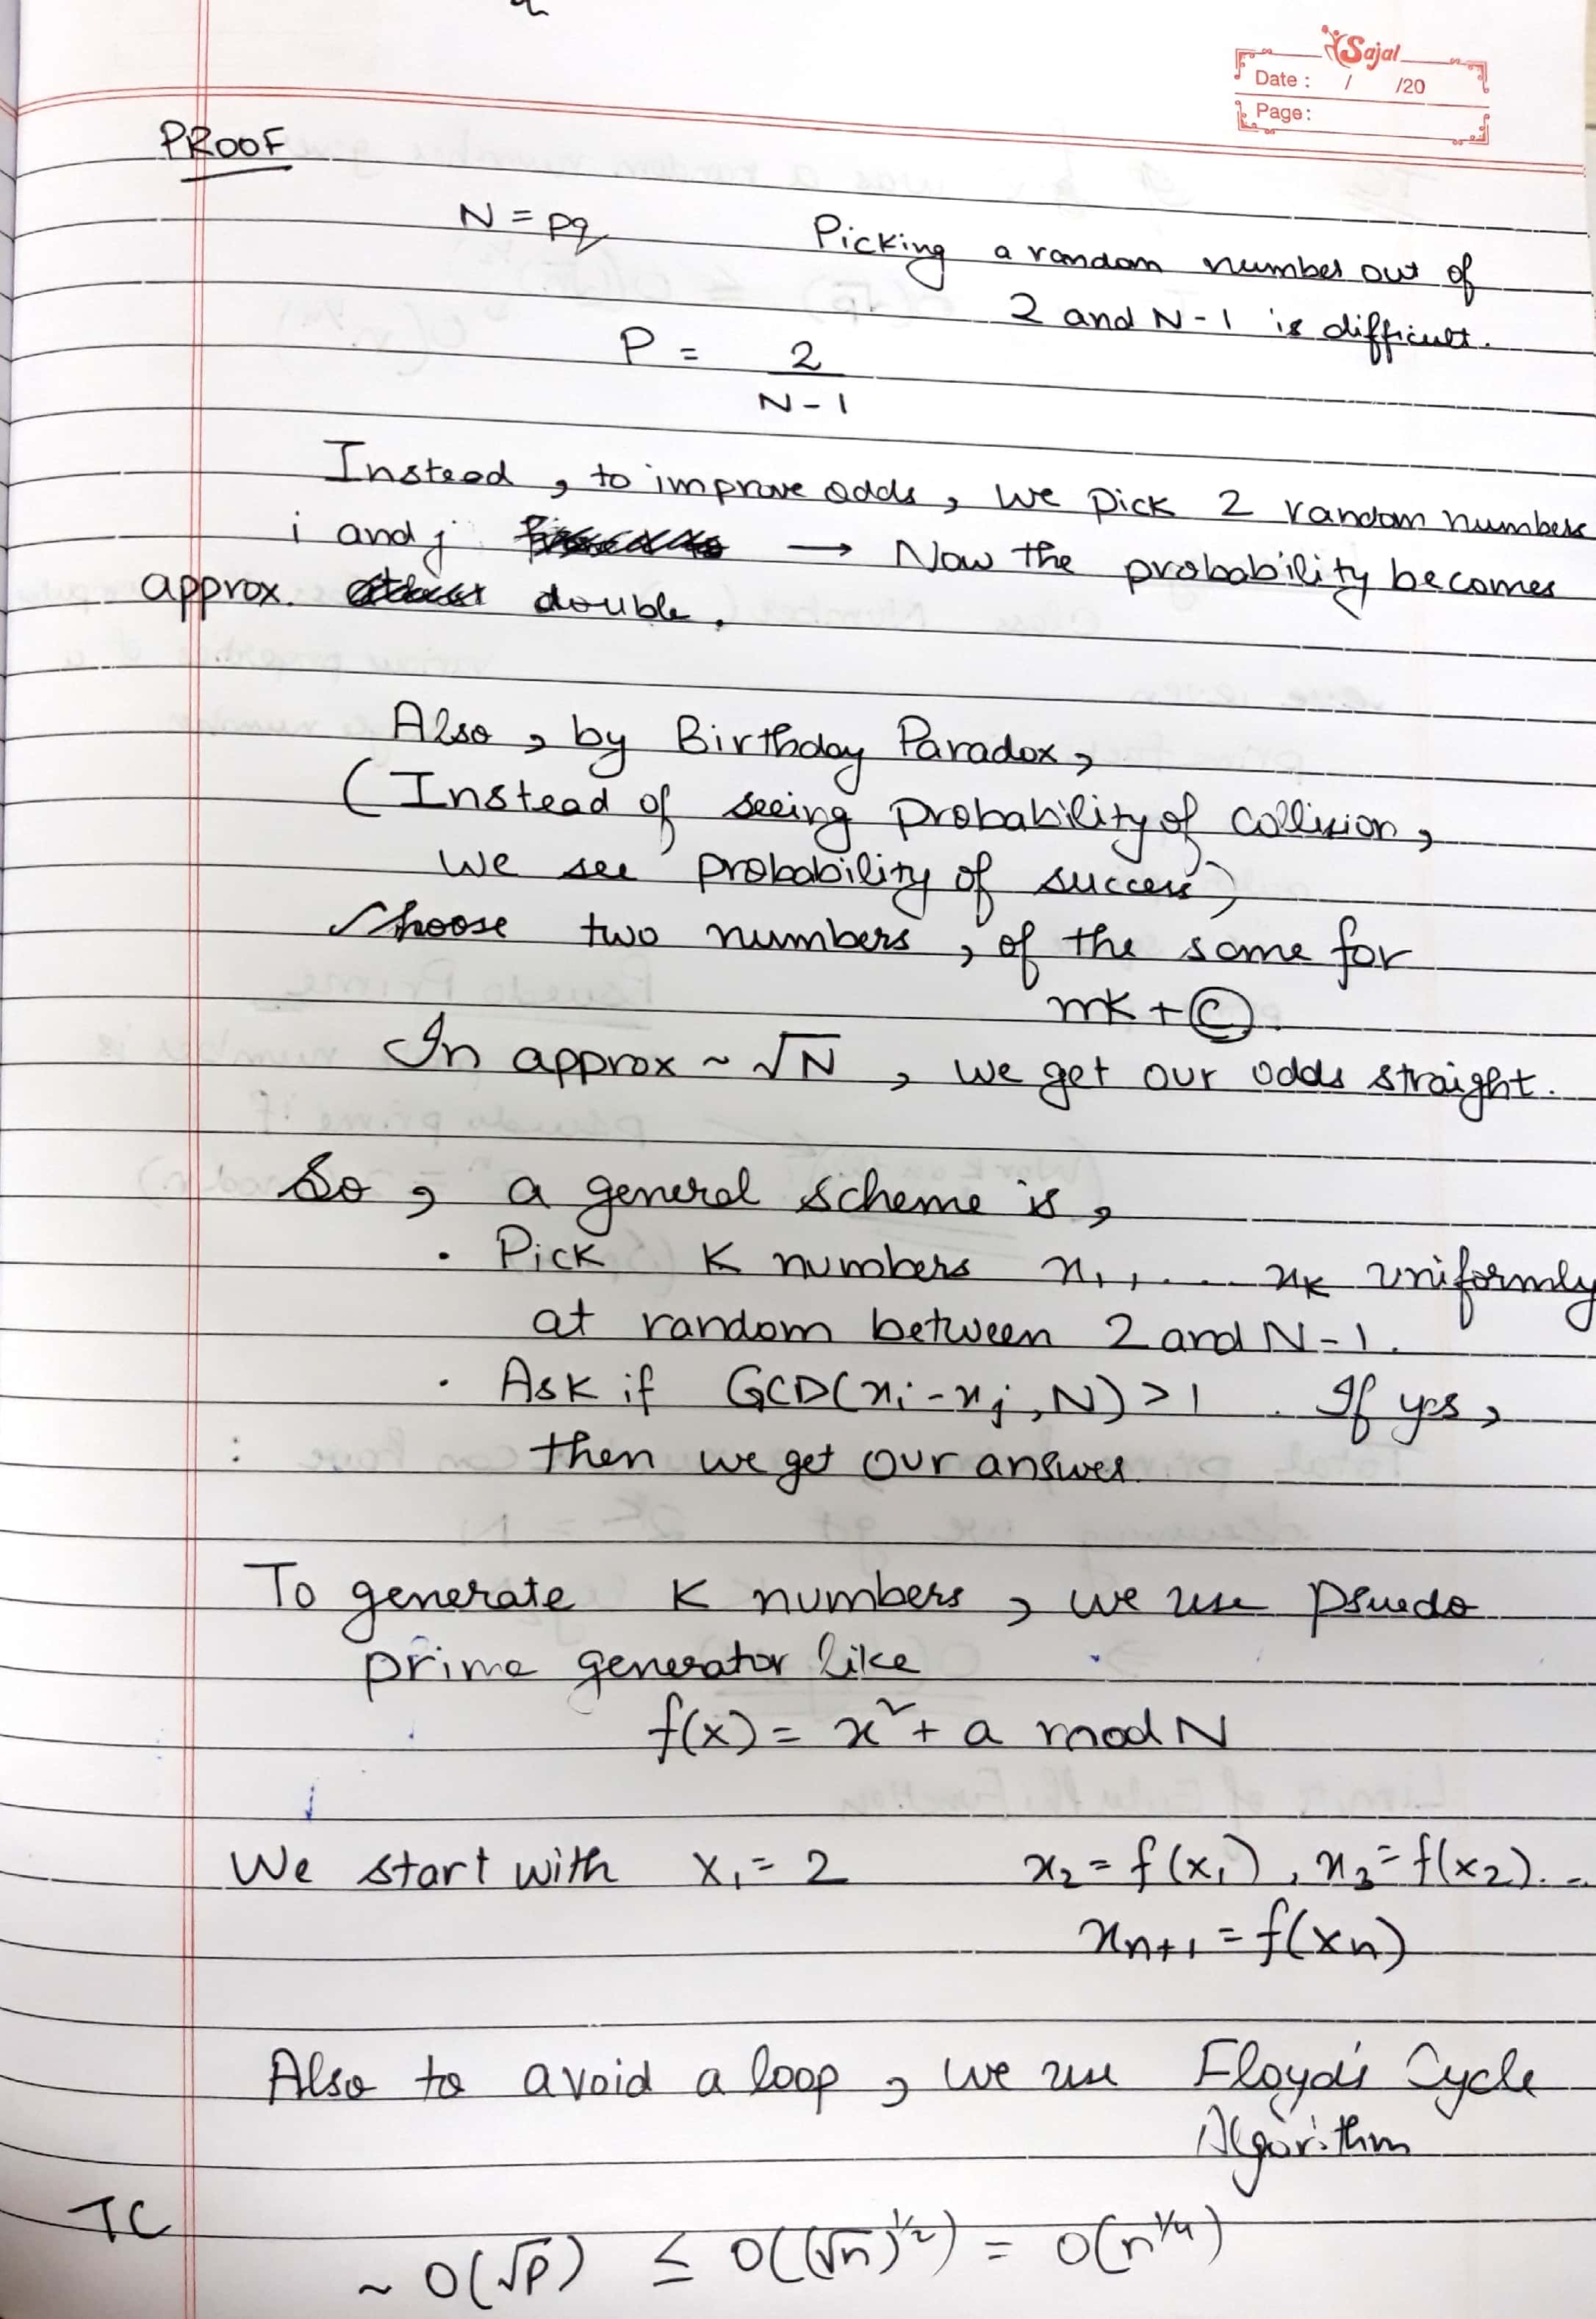 Sajal
Date : / /20
Page:
PROOF
N = pq Picking a random number out of
2 and N-1 is difficult.
P = 2
N-1
Instead, to improve odds, we pick 2 random numbers
i and j → Now the probability becomes
approx. double.
Also, by Birthday Paradox,
(Instead of seeing probability of collision,
we see probability of success)
Choose two numbers, of the same for
mk + c
In approx ~ √N, we get our odds straight.
So, a general scheme is,
· Pick K numbers x₁, .... xₖ uniformly
at random between 2 and N-1.
· Ask if GCD(xᵢ-xⱼ, N) > 1. If yes,
: then we get our answer
To generate K numbers, we use psuedo
prime generator like
f(x) = x² + a mod N
We start with x₁ = 2 x₂ = f(x₁), x₃ = f(x₂)...
xₙ₊₁ = f(xₙ)
Also to avoid a loop, we use Floyd's Cycle
Algorithm
TC
~ O(√p) ≤ O((√n)^1/2) = O(n^1/4)